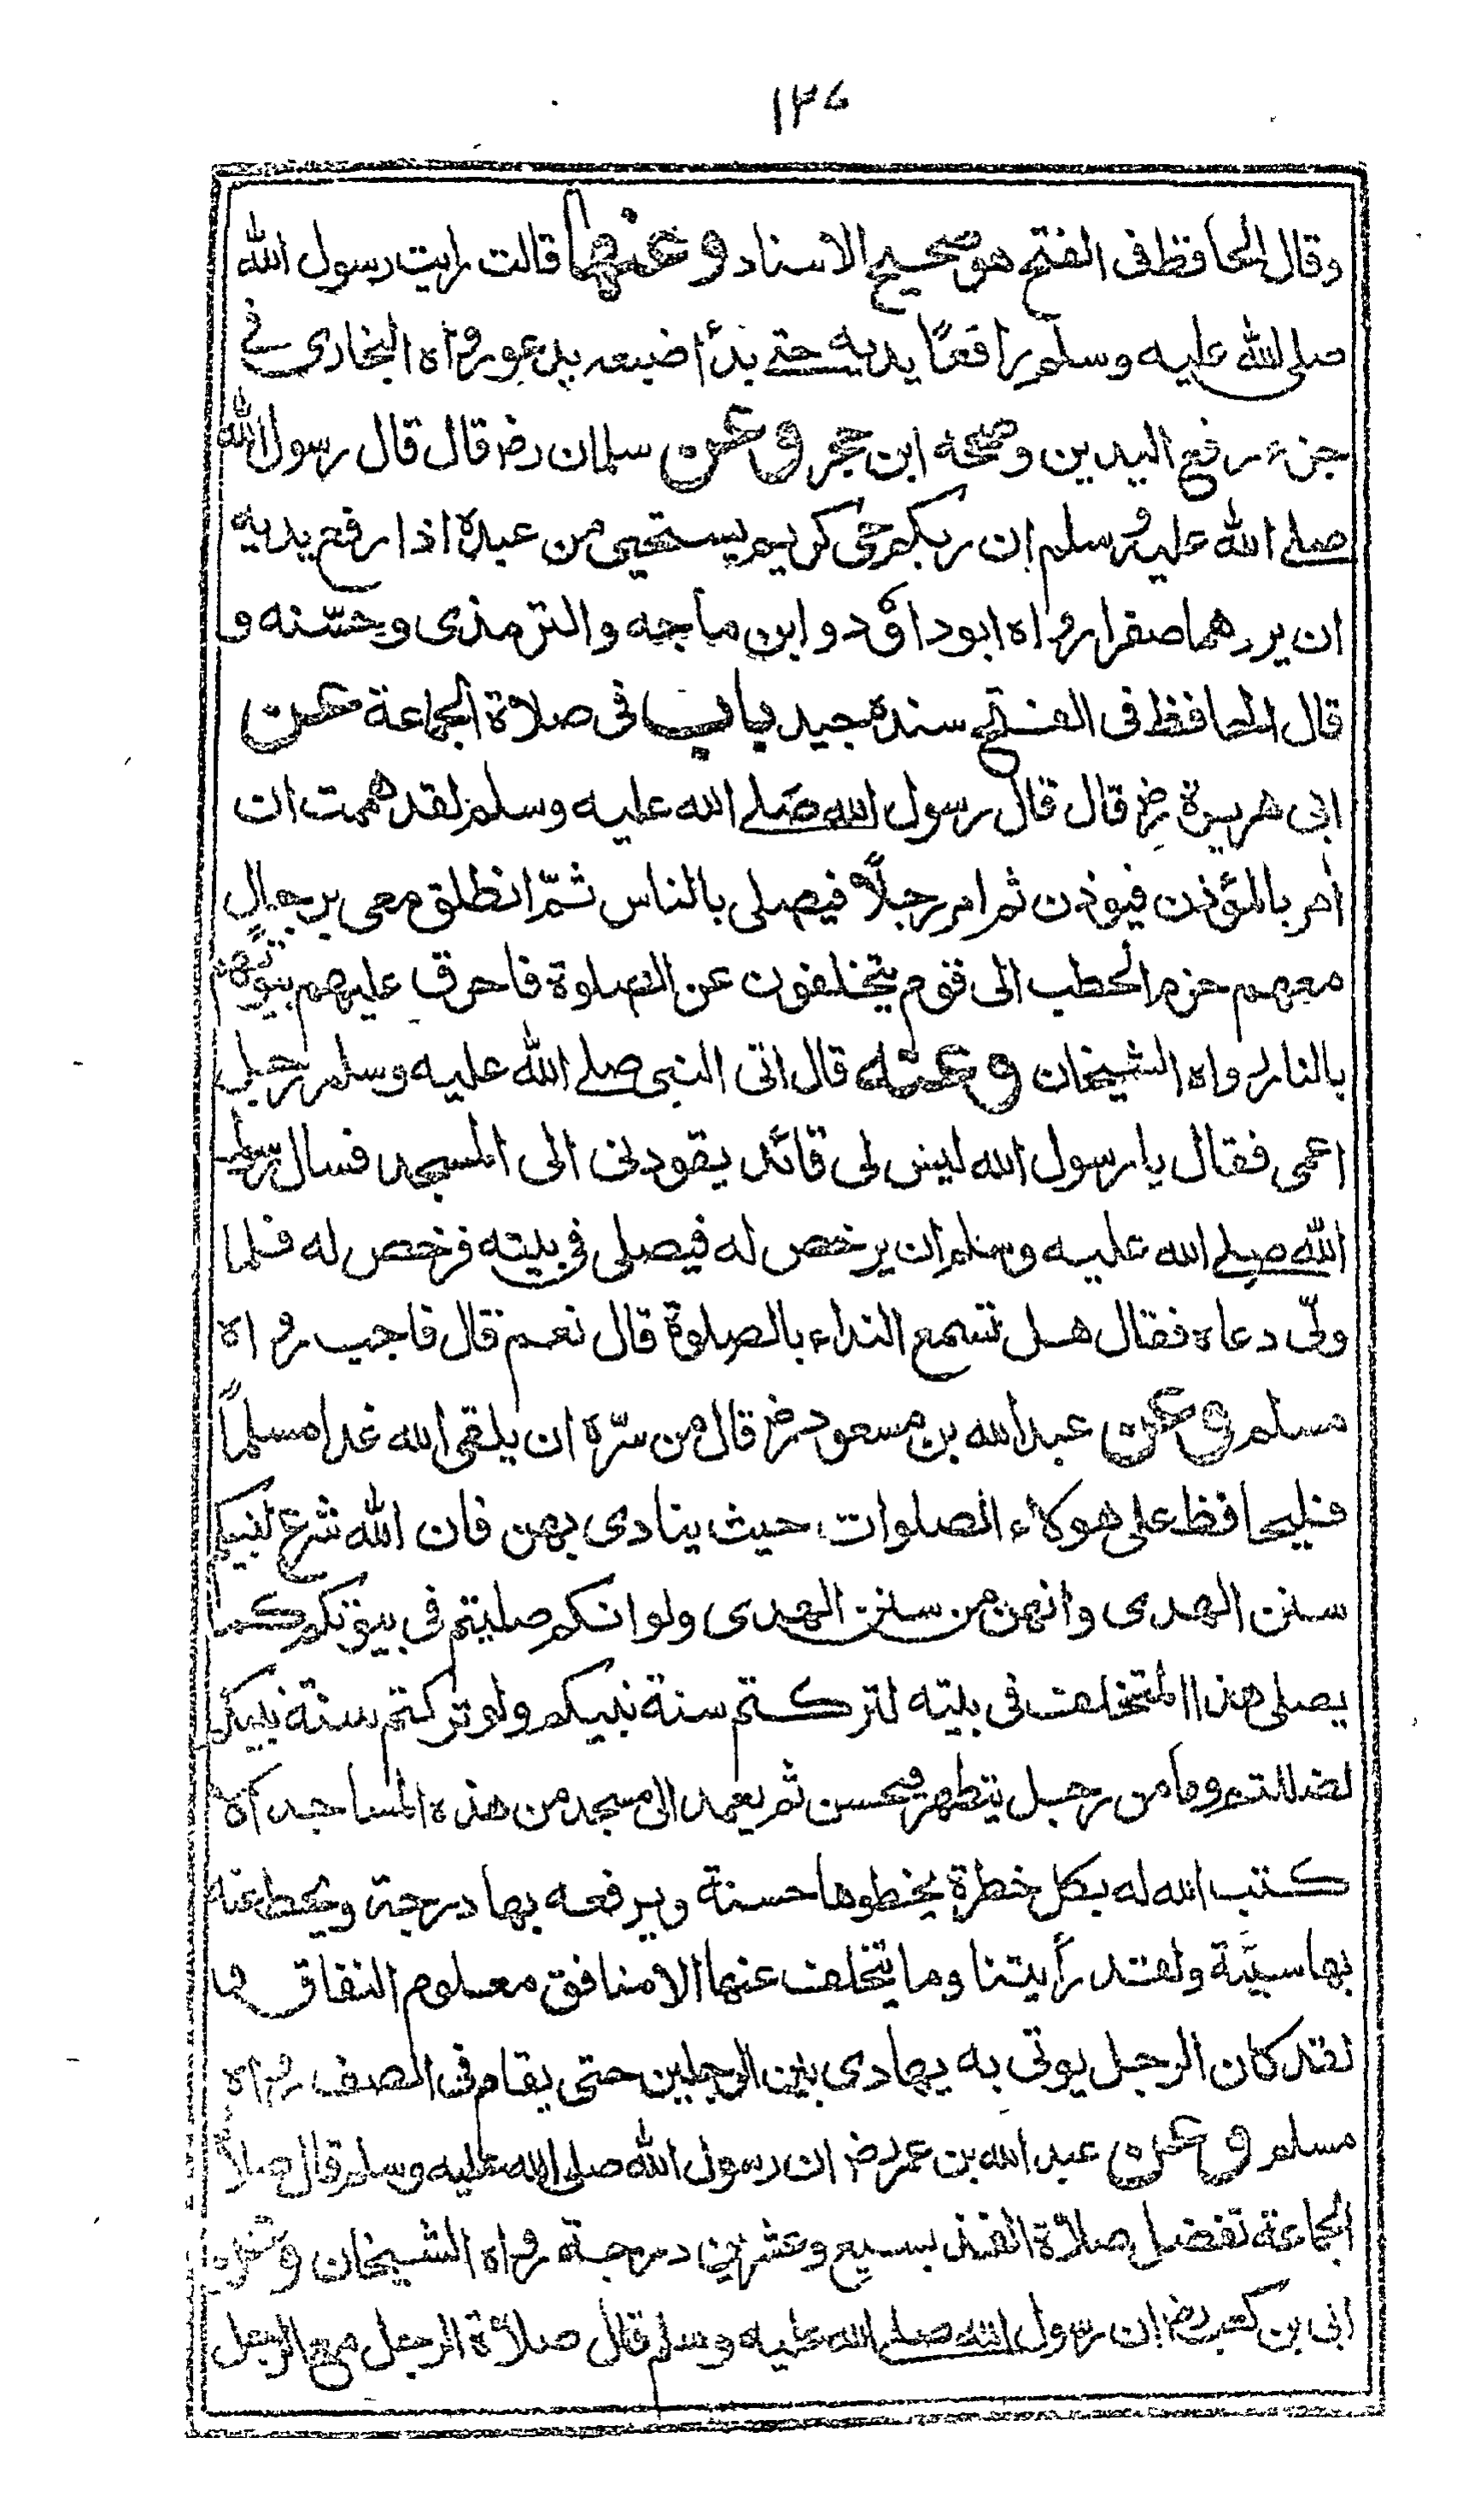 ١٣٤
وقال الحافظ فى الفتح هو صحيح الاسناد وعنها قالت رايت رسول الله
صلى الله عليه وسلم رافعًا يديه حتے بدأ ضبعه يدعو رواه البخارى فے
جزء رفع اليدين وصححه ابن حجر وعن سلمان رضـ قال قال رسول الله
صلے الله عليه وسلم ان ربكم حى كريم يستحيى من عبده اذا رفع يديه
ان يردهما صفرا رواه ابو داؤد وابن ماجه والترمذى وحسّنه و
قال الحافظ فى الفتح سنده جيد باب فى صلاة الجماعة عن
ابى هريرة رضـ قال قال رسول الله صلے الله عليه وسلم لقد هممت ان
أمر بالمؤذن فيوذن ثم امر رجلًا فيصلى بالناس ثمّ انطلق معى برجالٍ
معهم حزم الحطب الى قوم يتخلفون عن الصلوة فاحرق عليهم بيوتهم
بالنار رواه الشيخان وعنه قال اتى النبى صلے الله عليه وسلم رجل
اعمى فقال يا رسول الله ليس لى قائد يقودنى الى المسجد فسال رسول
اللّه صلے الله عليه وسلم ان يرخص له فيصلى فى بيته فرخص له فلما
ولّى دعاه فقال هل تسمع النداء بالصلوة قال نعم قال فاجب رواه
مسلم وعن عبد الله بن مسعود رضـ قال من سرّه ان يلقى الله غدا مسلمًا
فليحافظ على هولاء الصلوات حيث ينادى بهن فان الله شرع لنبيكم
سنن الهدى وانهن من سنن الهدى ولو انكم صليتم فى بيوتكم كما
يصلى هذا المتخلف فى بيته لتركتم سنة نبيكم ولو تركتم سنة نبيكم
لضللتم وما من رجل يتطهر فيحسن ثم يعمد الى مسجد من هذه المساجد الا
كتب الله له بكل خطوة يخطوها حسنة ويرفعه بها درجة ويحط عنه
بها سيّئة ولقد رأيتنا وما يتخلف عنها الا منافق معلوم النفاق و
لقد كان الرجل يوتى به يهادى بين الرجلين حتى يقام فى الصف رواه
مسلم وعن عبد الله بن عمر رضـ ان رسول الله صلى الله عليه وسلم قال صلاة
الجماعة تفضل صلاة الفذ بسبع وعشرين درجة رواه الشيخان وعن
ابى بن كعب رضـ ان رسول الله صلے الله عليه وسلم قال صلاة الرجل مع الرجل